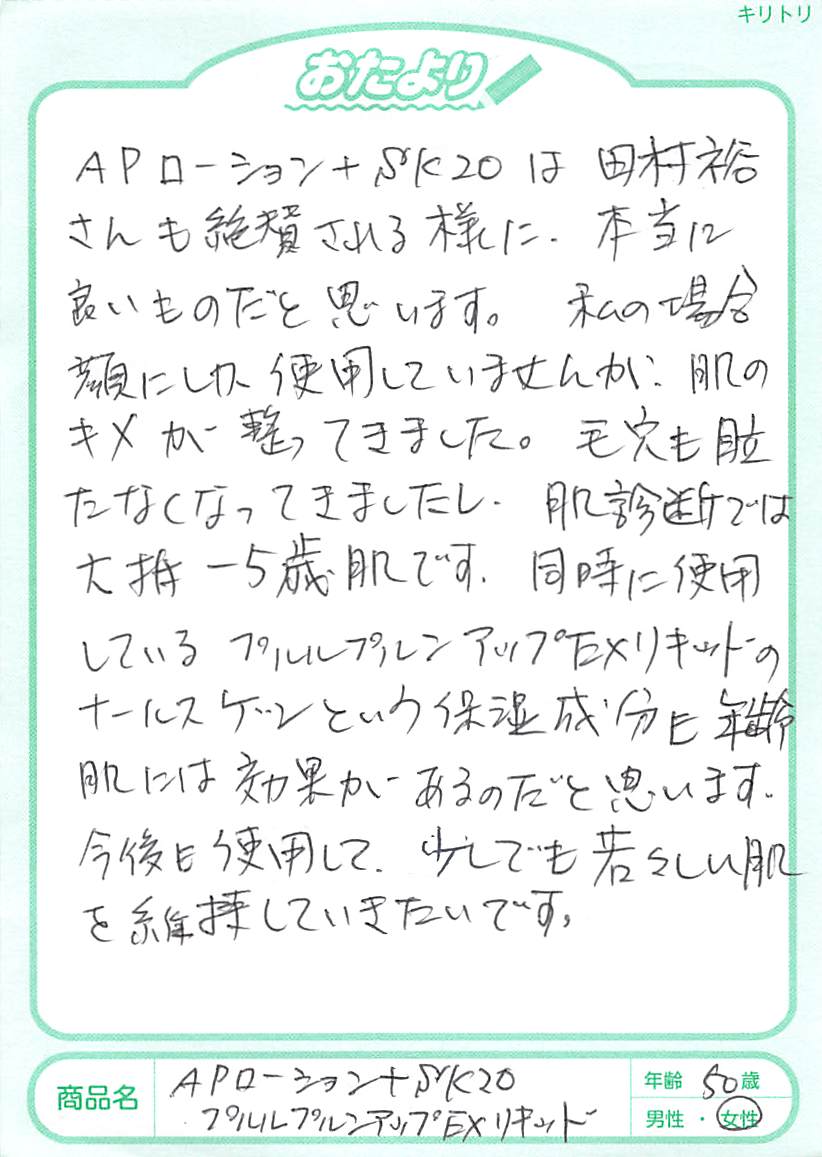 キリトリ
おたより
APローション+SK20は 田村裕
さんも絶賛される様に、本当に
良いものだと思います。 私の場合
顔にしか使用していませんが、肌の
キメが整ってきました。毛穴も目立
たなくなってきましたし、肌診断では
大抵 -5歳肌です。同時に使用
している プルルプルンアップEXリキッドの
ナールスゲンという保湿成分も年齢
肌には効果があるのだと思います。
今後も使用して、少しでも若々しい肌
を維持していきたいです。
商品名 APローション+SK20
プルルプルンアップEXリキッド
年齢 50歳
男性・女性